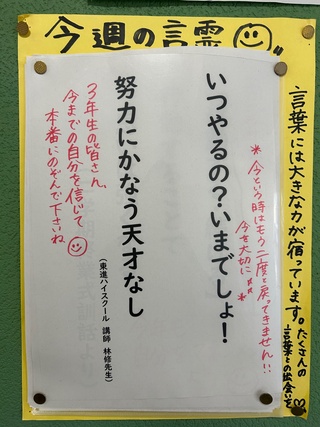 今週の言霊
言葉には大きな力が宿っています。たくさんの
言葉との出会いを♡
*今という時はもう二度と戻ってきません!!
今を大切に**
いつやるの?いまでしょ!
努力にかなう天才なし
(東進ハイスクール 講師 林修先生)
3年生の皆さん、
今までの自分を信じて
本番にのぞんで下さいね